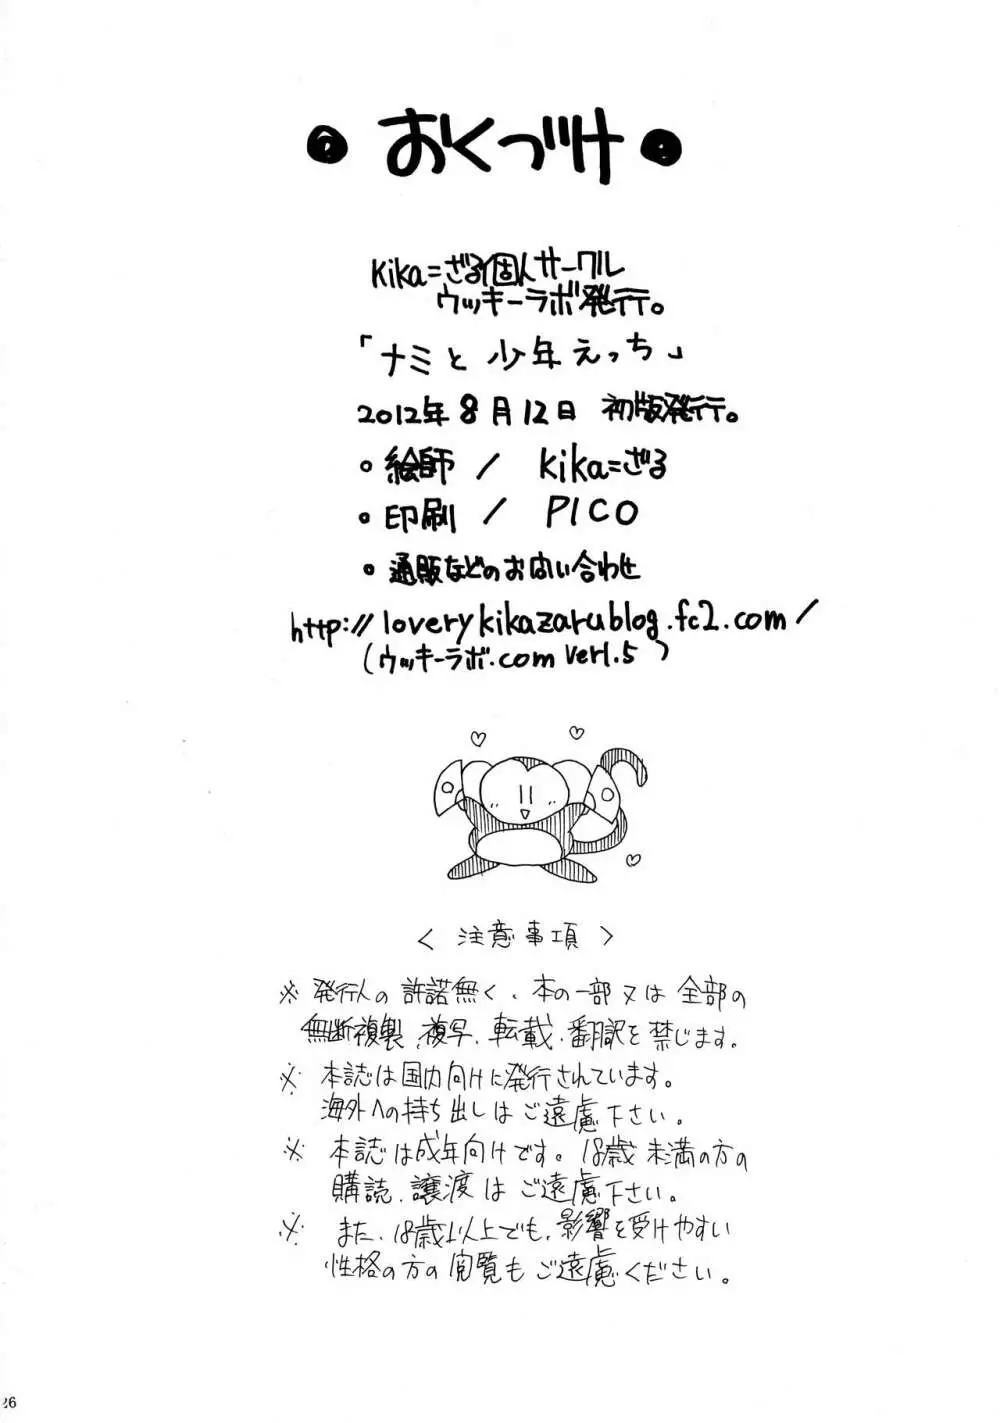 おくづけ
kika=ざる個人サークル
ウッキーラボ発行。
「ナミと少年えっち」
2012年8月12日 初版発行。
・絵師 / kika=ざる
・印刷 / PICO
・通販などのお問い合わせ
http://loverykikazarublog.fc2.com/
(ウッキーラボ.com ver1.5)
< 注意事項 >
※ 発行人の許諾無く、本の一部又は全部の
無断複製、複写、転載、翻訳を禁じます。
※ 本誌は国内向けに発行されています。
海外への持ち出しはご遠慮下さい。
※ 本誌は成年向けです。18歳未満の方の
購読、譲渡はご遠慮下さい。
※ また、18歳以上でも、影響を受けやすい
性格の方の閲覧もご遠慮ください。
26